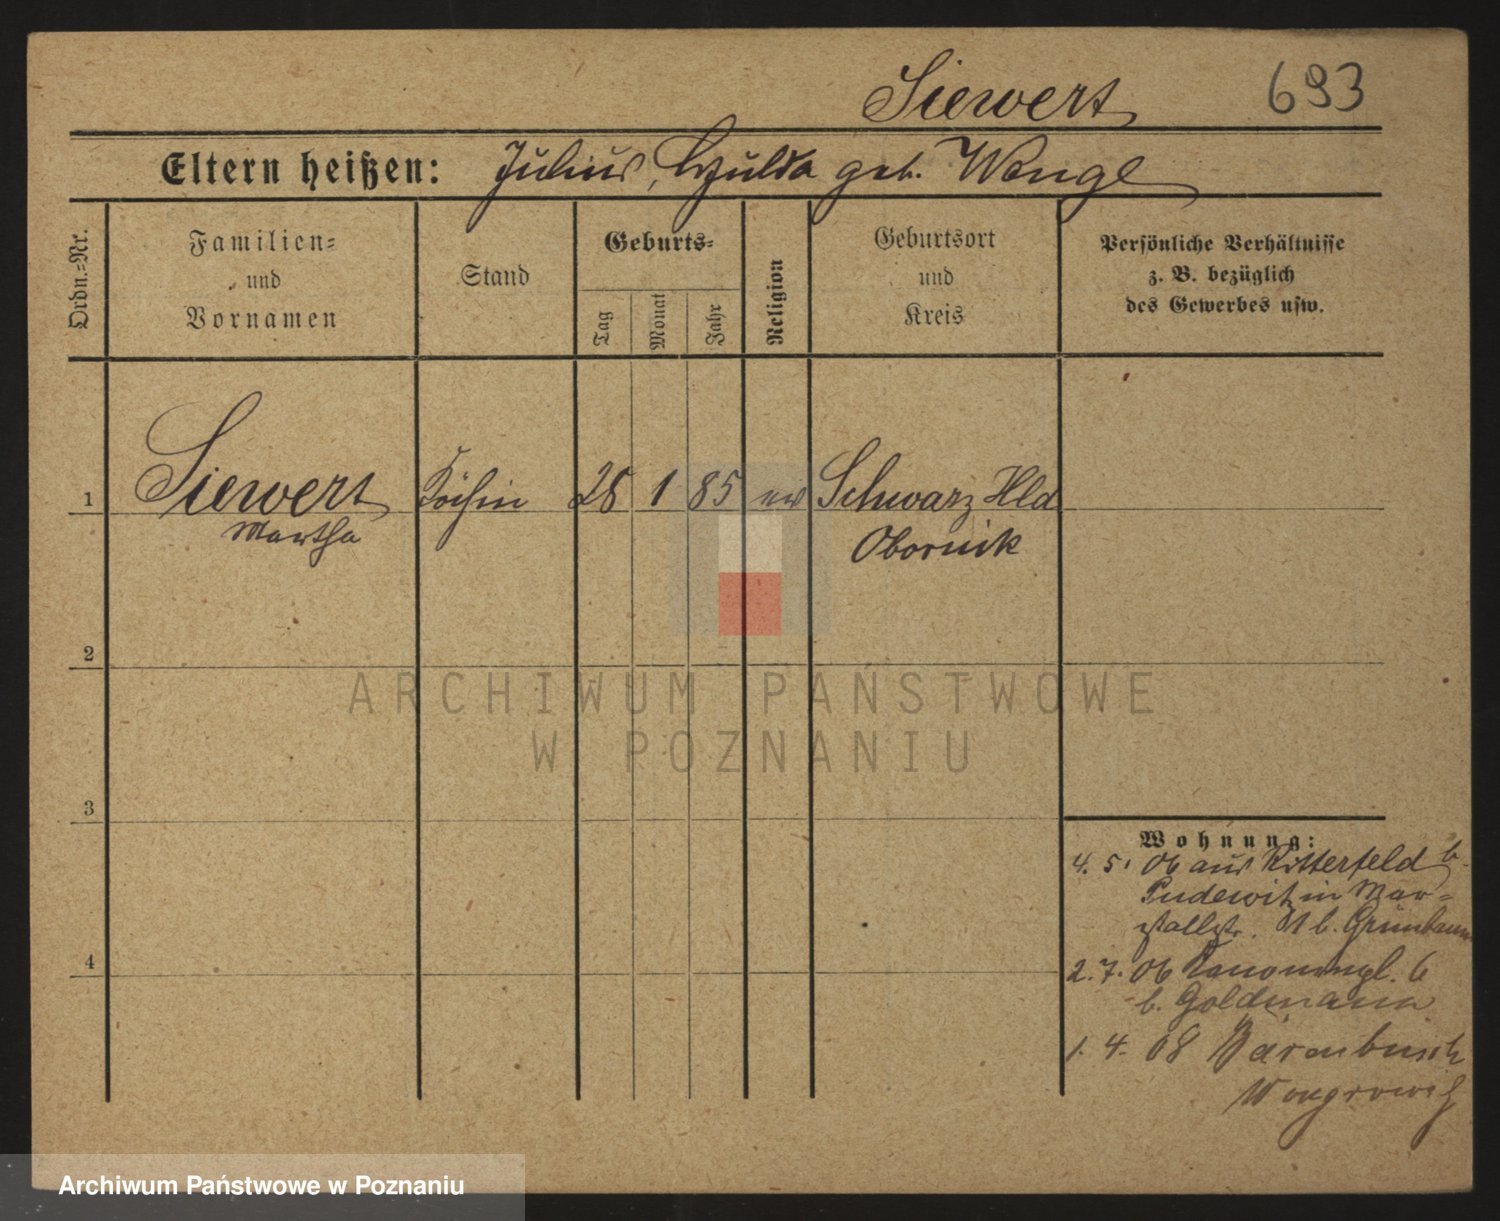 Siewert 693
Eltern heißen: Julius, Hulda geb. Wenge
Ordn.-Nr.
Familien-
und
Vornamen
Stand
Geburts-
Tag
Monat
Jahr
Religion
Geburtsort
und
Kreis
Persönliche Verhältnisse
z. B. bezüglich
des Gewerbes usw.
1 Siewert Köchin 28 1 85 ev Schwarz Hld
Martha Obornik
2
ARCHIWUM PAŃSTWOWE
W POZNANIU
3
Wohnung:
4. 5. 06 aus Ritterfeld b.
Pudewitz in Mar-
stallstr. b. Grünbaum
4
2. 7. 06 6
b. Goldmann
1. 4. 08 Bärenbusch
Wongrowitz
Archiwum Państwowe w Poznaniu